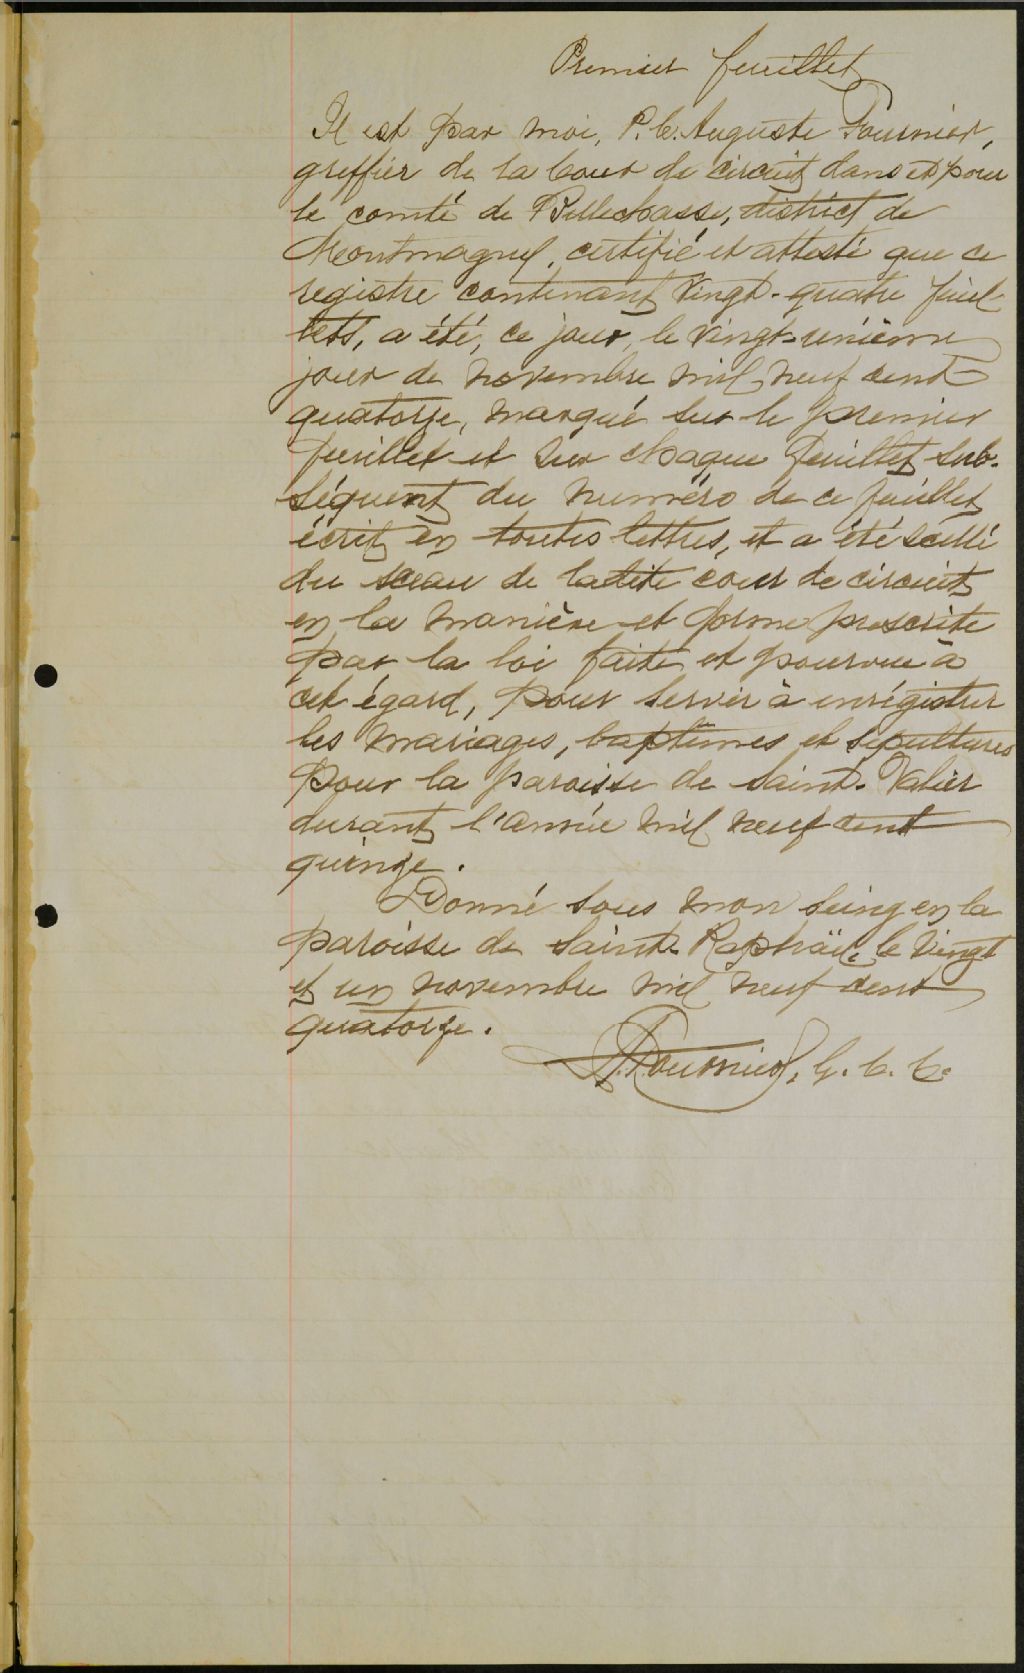 Premier feuillet
Il est par moi, P. C. Auguste Fournier,
greffier de la Cour de circuit dans et pour
le comté de Bellechasse, district de
Montmagny, certifié et attesté que ce
registre contenant vingt-quatre feuil
lets, a été, ce jour, le vingt-unième
jour de novembre mil neuf cent
quatorze, marqué sur le premier
feuillet et sur chaque feuillet sub-
séquent du numéro de ce feuillet
écrit en toutes lettres, et a été scellé
du sceau de ladite cour de circuit
en la manière et forme prescrite
par la loi faite et pourvue à
cet égard, pour servir à enrégistrer
les mariages, baptêmes et sépultures
pour la paroisse de Saint-Valier
durant l'année mil neuf cent
quinze.
Donné sous mon seing en la
paroisse de Saint-Raphaël, le vingt
et un novembre mil neuf cent
quatorze.
A. Fournier, G. C. C.